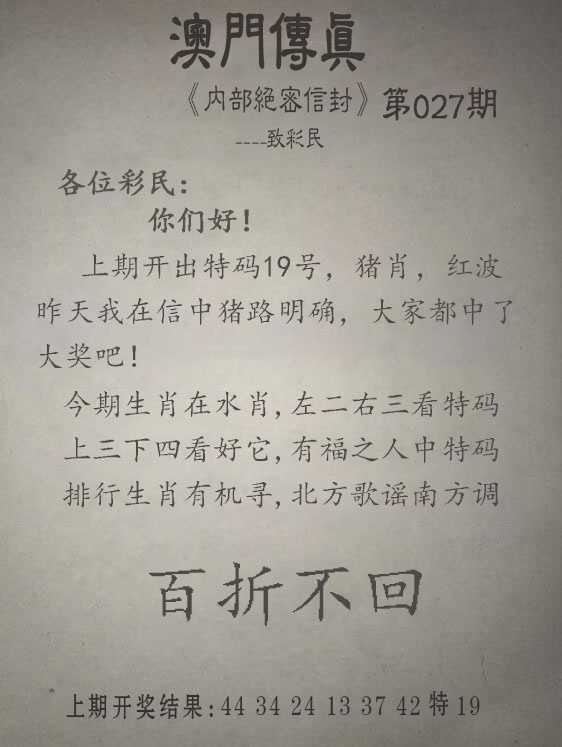 澳門傳真
《内部絕密信封》第027期
----致彩民
各位彩民：
你们好！
上期开出特码19号，猪肖，红波
昨天我在信中猪路明确，大家都中了
大奖吧！
今期生肖在水肖,左二右三看特码
上三下四看好它,有福之人中特码
排行生肖有机寻,北方歌谣南方调
百折不回
上期开奖结果:44 34 24 13 37 42 特 19